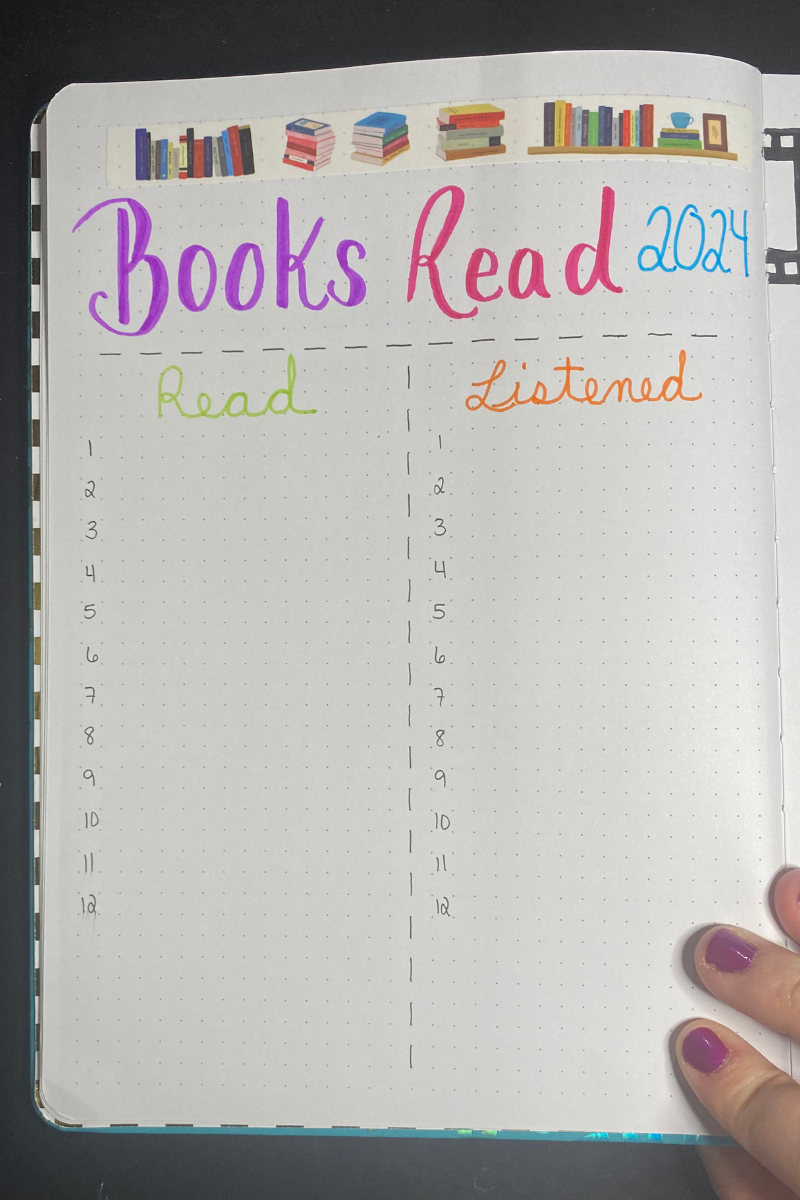 Books Read 2024
Read
1
2
3
4
5
6
7
8
9
10
11
12
Listened
1
2
3
4
5
6
7
8
9
10
11
12